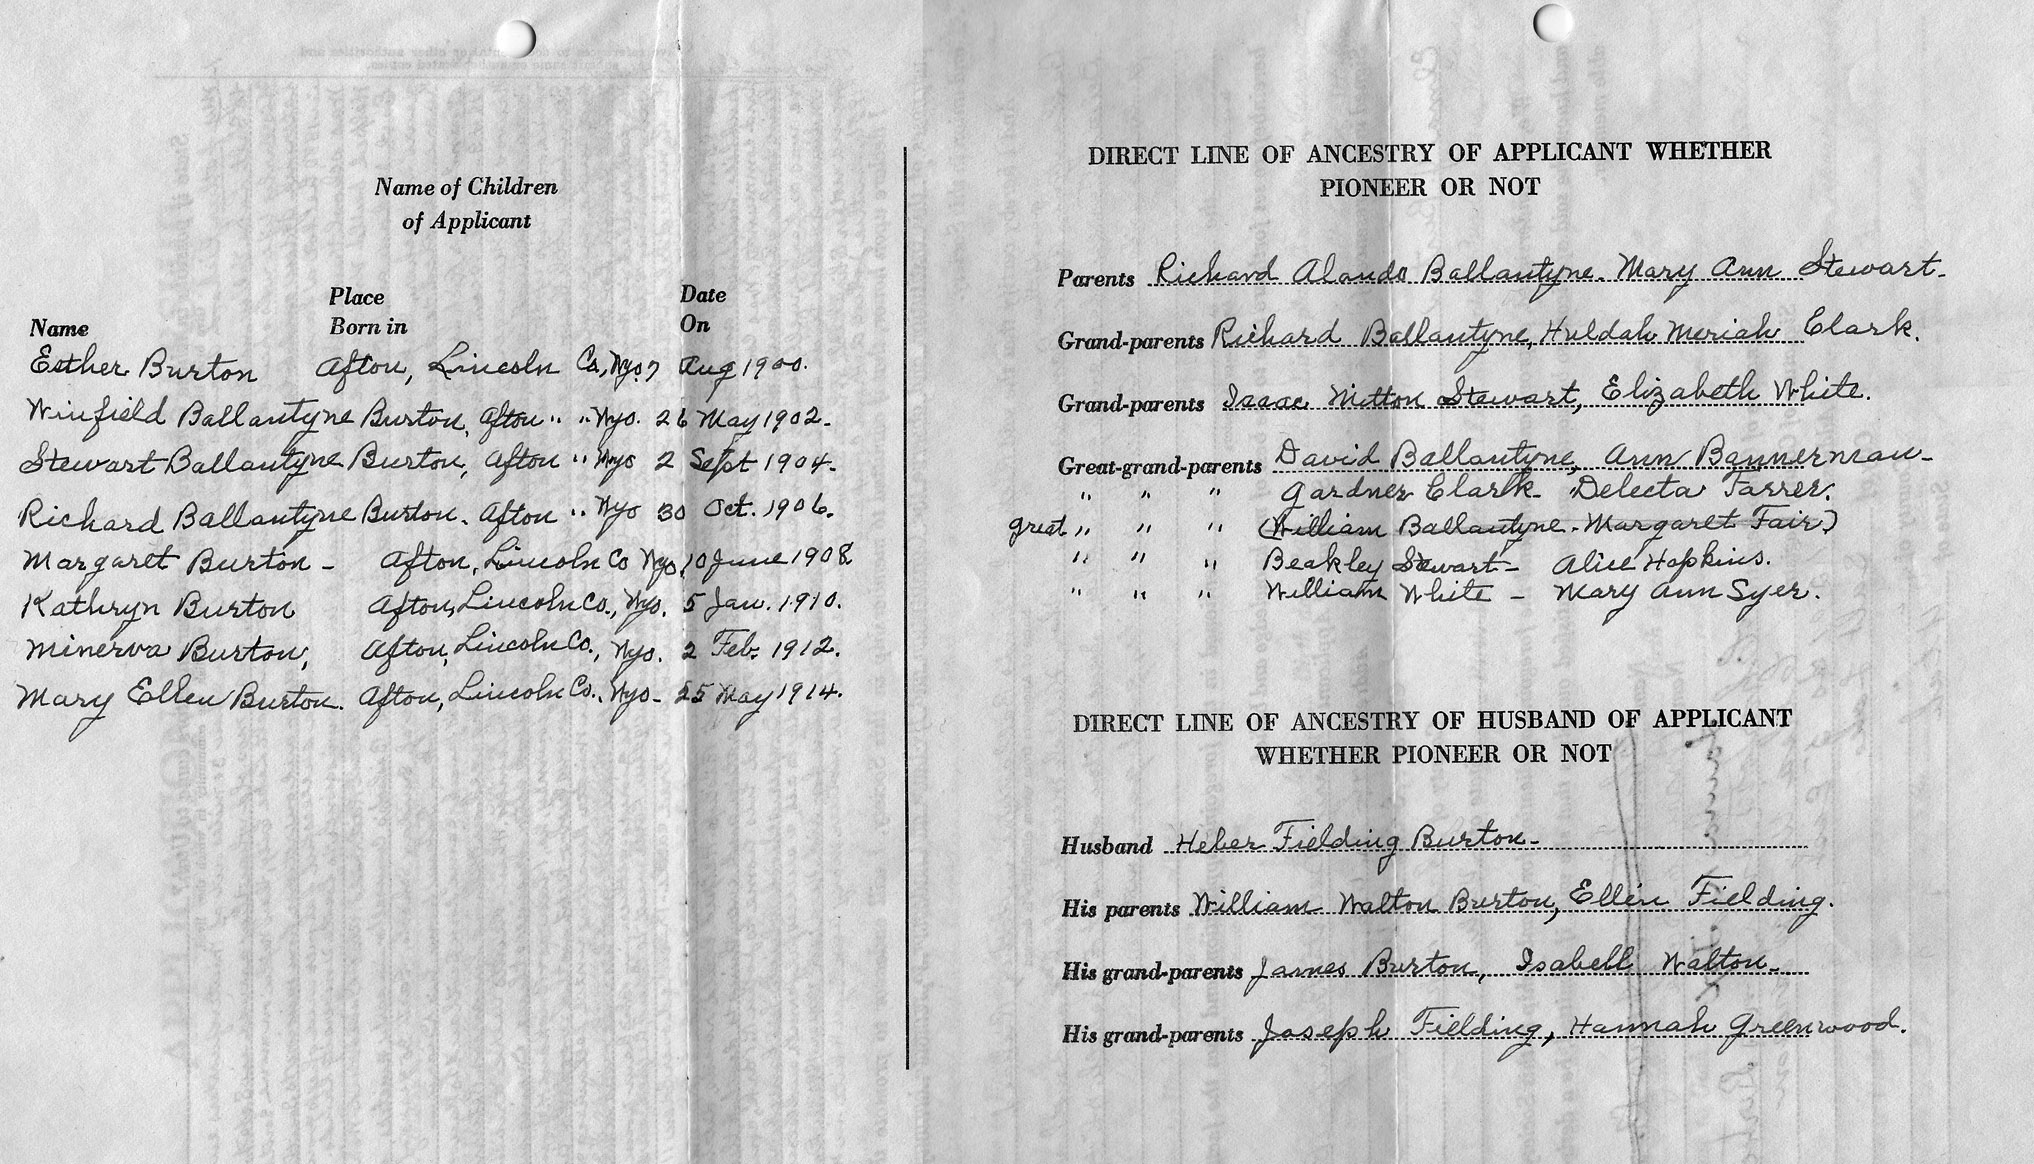 Name of Children
of Applicant
Name
Place
Born in
Date
On
Esther Burton Afton, Lincoln Co, Wyo. 7 Aug 1900.
Winfield Ballantyne Burton, Afton " " Wyo. 26 May 1902.
Stewart Ballantyne Burton, Afton " Wyo 2 Sept 1904.
Richard Ballantyne Burton. Afton " Wyo 30 Oct. 1906.
Margaret Burton - Afton, Lincoln Co Wyo, 10 June 1908
Kathryn Burton Afton, Lincoln Co., Wyo. 5 Jan. 1910.
Minerva Burton, Afton, Lincoln Co., Wyo. 2 Feb. 1912.
Mary Ellen Burton. Afton, Lincoln Co., Wyo- 25 May 1914.
DIRECT LINE OF ANCESTRY OF APPLICANT WHETHER
PIONEER OR NOT
Parents Richard Alando Ballantyne. Mary Ann Stewart-
Grand-parents Richard Ballantyne, Huldah Meriah Clark.
Grand-parents Isaac Mitton Stewart, Elizabeth White.
Great-grand-parents David Ballantyne, Ann Bannerman-
" " " Gardner Clark- Delecta Farrer.
great " " " (William Ballantyne - Margaret Fair)
" " " Beakley Stewart- Alice Hopkins.
" " " William White - Mary Ann Syer.
DIRECT LINE OF ANCESTRY OF HUSBAND OF APPLICANT
WHETHER PIONEER OR NOT
Husband Heber Fielding Burton-
His parents William Walton Burton, Ellen Fielding.
His grand-parents James Burton, Isabell Walton-
His grand-parents Joseph Fielding, Hannah Greenwood.